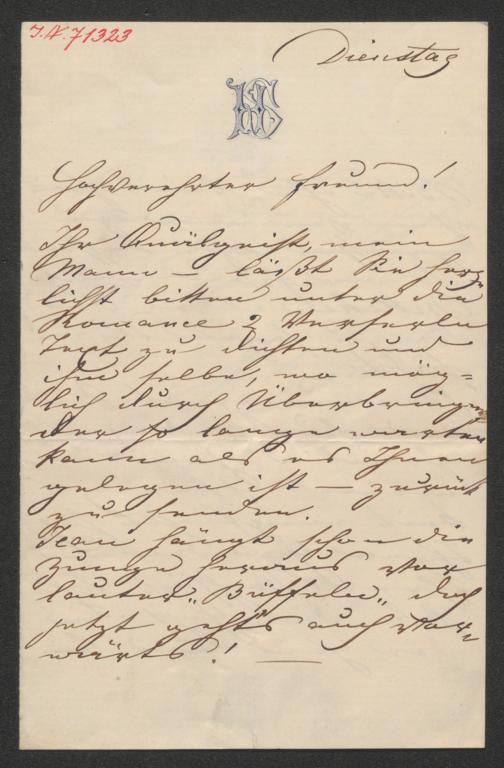 I. N. 71323
Dienstag
HS
Hochverehrter Freund!
Ihr Quälgeist, mein
Mann – läßt Sie herz=
lichst bitten unter die
Romance 2 Verserln
Text zu dichten und
ihm selbe, wo mög=
lich durch Überbringer,
der so lange warten
kann als es Ihnen
gelegen ist – zurück
zu senden.
Jean hängt schon die
Zunge heraus vor
lauter „Büffeln„ doch
jetzt geht's auch vor=
wärts! —